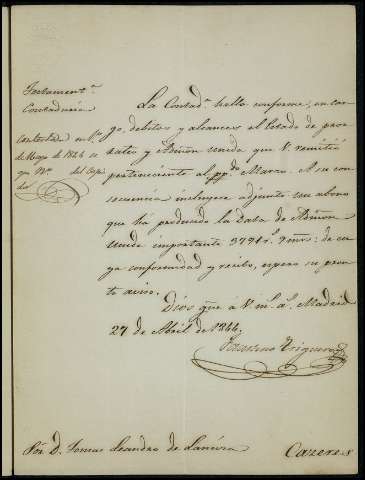 Testament.ª
Contaduria
Contestada en 1.º
de Mayo de 1844
La Contad.ª halla conforme, en car-
go, debitos y alcances el Estado de pror-
rateo y Admon unida que V. remitió
perteneciente al pp.do Marzo. A su con-
secuencia incluyo adjunto un abono
que ha producido la Data de Admon
unida importante 3791 r.s 9 mrs: de cu-
ya conformidad y recibo, espero su pron-
to aviso.
Dios gue á V m.s a.s Madrid
27 de Abril de 1844.
Faustino Trigueros
Sor. D. Tomas Leandro de
Cazeres